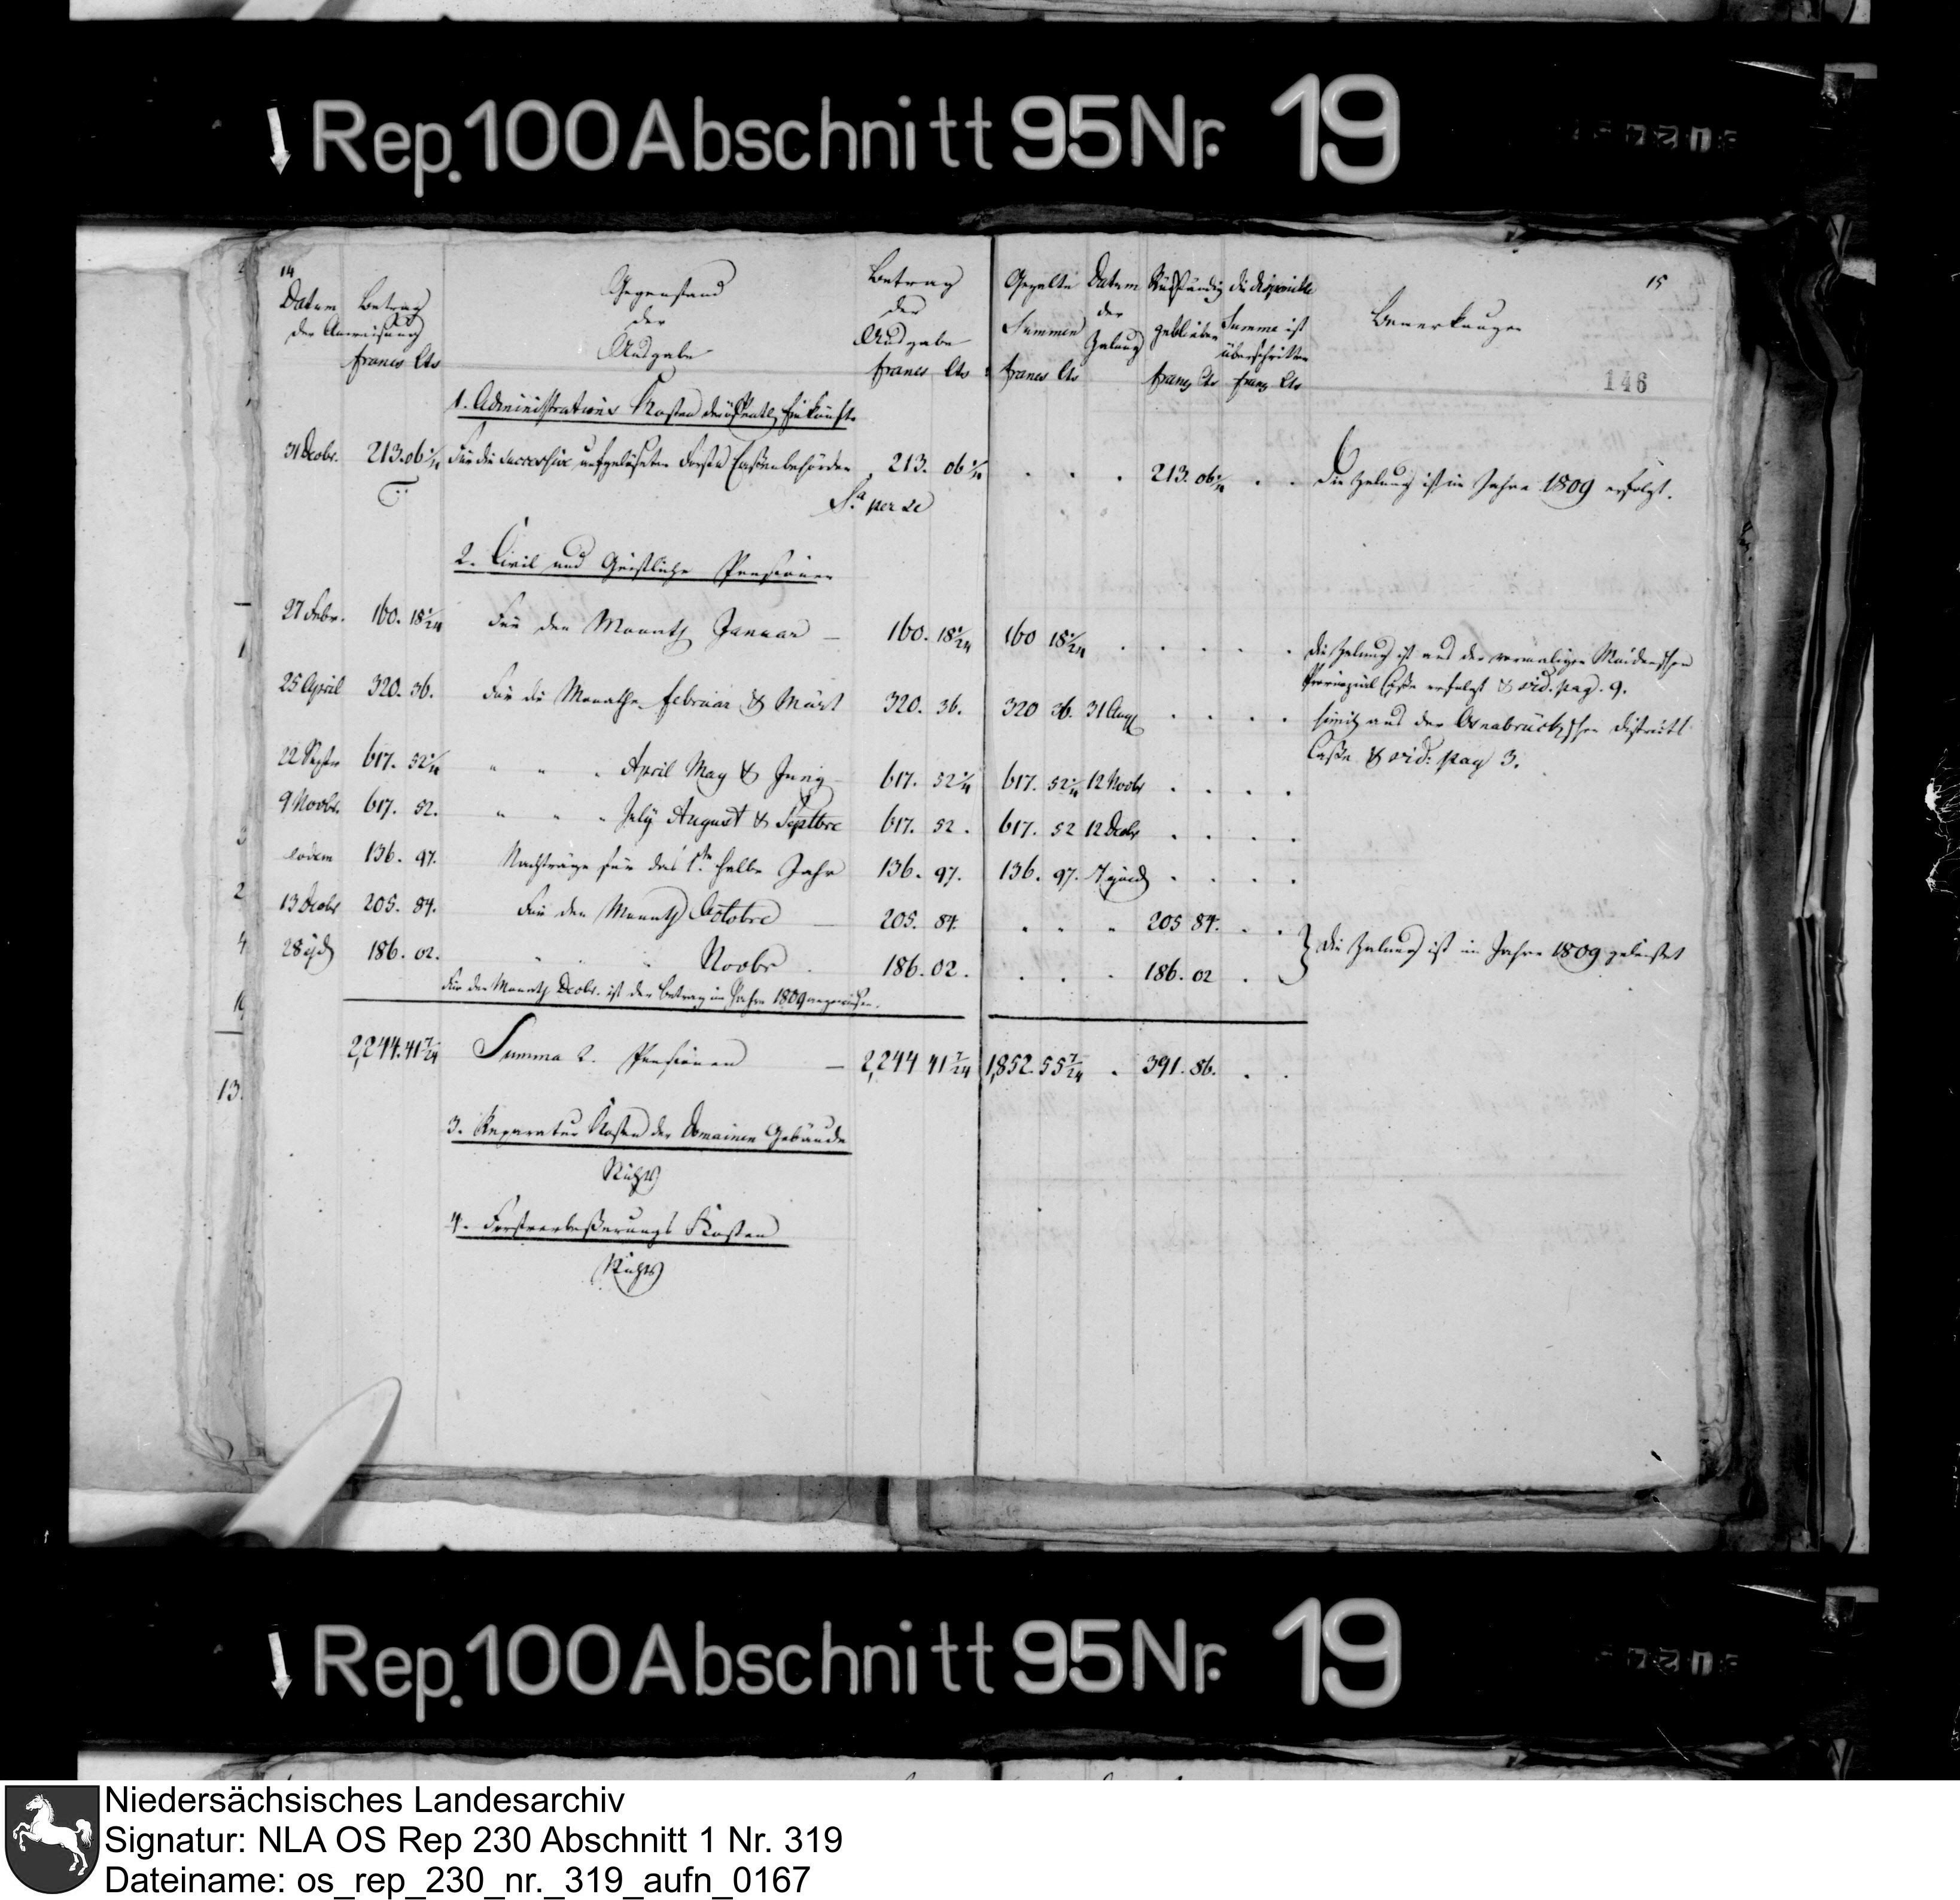 Rep. 100 Abschnitt 95 Nr. 19
14
Datum Betrag
der Anweisung
francs Cts
Gegenstand
der
Ausgabe
Betrag
der
Ausgabe
francs Cts
Gezalte Summen
francs Cts
Datum
der
Zalung
Rückständig
geblieben
francs Cts
die disponible
Summe ist
überschritten
francs Cts
Bemerkungen
15
146
1. Administrations Kosten der öffentl. Einkünfte
31 Decbr. 213.06 Für die successive aufgelöseten Cassenbehörden 213. 06 . . . 213. 06 . . die Zalung ist im Jahre 1809 erfolgt.
Sa per se
2. Civil und Geistliche Pensionen
27 Febr. 160. 18 1/24 Für den Monath Januar – 160. 18 1/24 160 18 1/24 . . . . . die Zalung ist aus der vormaligen Mindenschen
Provinzial Casse erfolgt & vid. pag. 9.
25 April 320. 36. Für die Monathe Februar & Märt 320. 36. 320 36. 31 Aug . . . .
aus der Osnabrückschen Districts
Casse & vid: pag 3.
22 Septbr 617. 52 " " " April May & Juny 617. 52 617. 52 12 Novbr . . . .
9 Novbr. 617. 52. " " " July August & Septbre 617. 52. 617. 52 12 Decbr . . . .
eodem 136. 97. Nachträge für das 1te halbe Jahr 136. 97. 136. 97. . . . .
13 Decbr 205. 84. Für den Monath Octobre – 205. 84. . . . 205 84. . .
28 ejd 186. 02. " " Novbr . 186. 02. . . . 186. 02 . } die Zalung ist im Jahre 1809 geleistet
Für den Monath Decbr. ist der Betrag im Jahre 1809 angewiesen.
2,244.41 7/24 Summa 2. Pensionen – 2,244 41 7/24 1,852. 55 7/24 . 391. 86. . .
3. Reparatur Kosten der Domainen Gebäude
Nichts
4. Forstverbeßerungs Kosten
Nichts
Rep. 100 Abschnitt 95 Nr. 19
Niedersächsisches Landesarchiv
Signatur: NLA OS Rep 230 Abschnitt 1 Nr. 319
Dateiname: os_rep_230_nr._319_aufn_0167